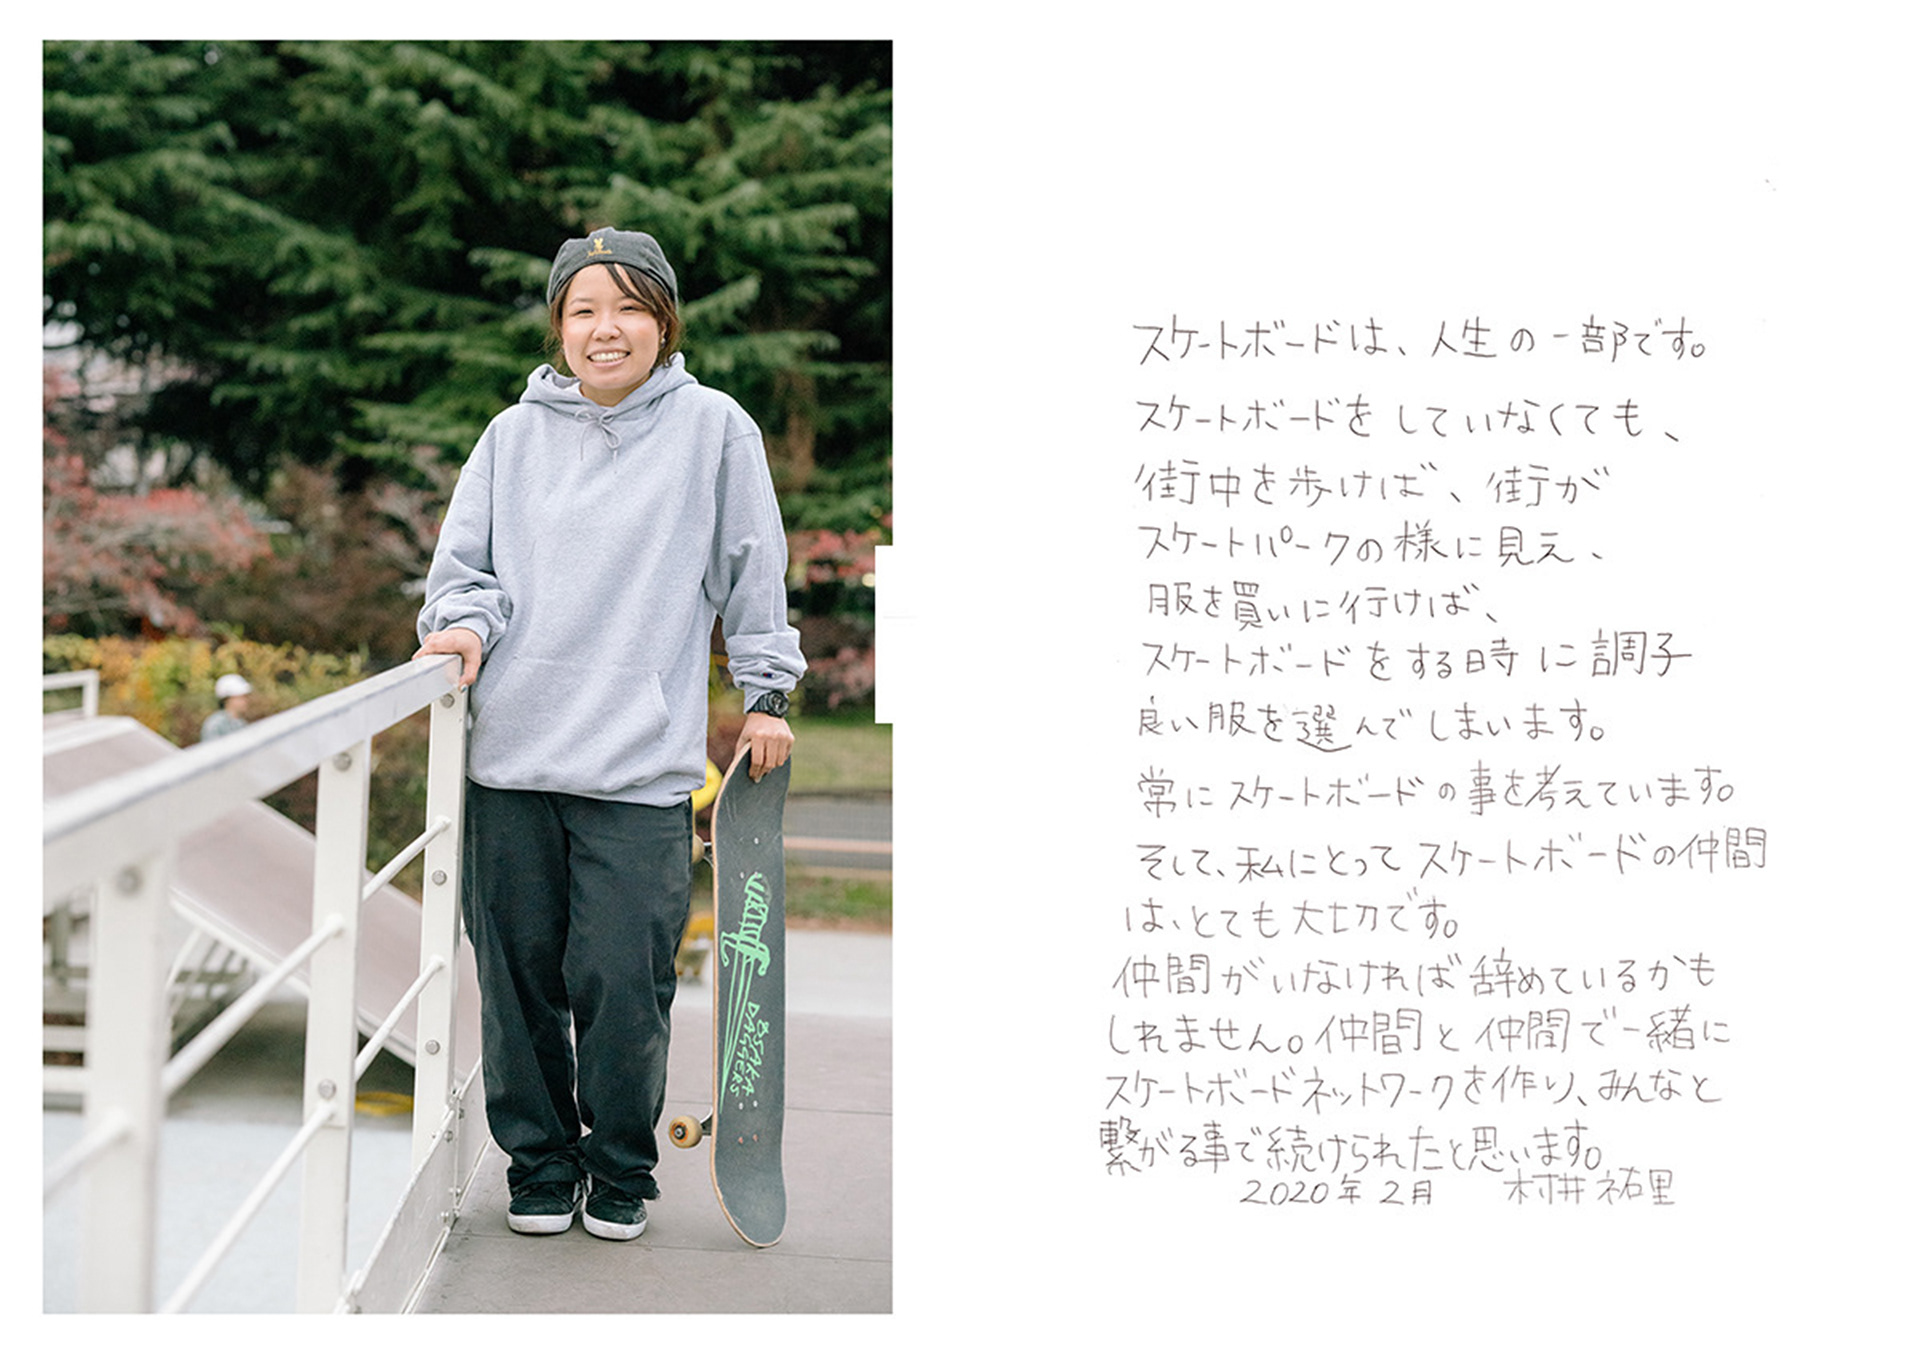 OSAKA
DAGGERS
スケートボードは、人生の一部です。
スケートボードをしていなくても、
街中を歩けば、街が
スケートパークの様に見え、
服を買いに行けば、
スケートボードをする時に調子
良い服を選んでしまいます。
常にスケートボードの事を考えています。
そして、私にとってスケートボードの仲間
は、とても大切です。
仲間がいなければ辞めているかも
しれません。仲間と仲間で一緒に
スケートボードネットワークを作り、みんなと
繋がる事で続けられたと思います。
2020年2月 村井祐里